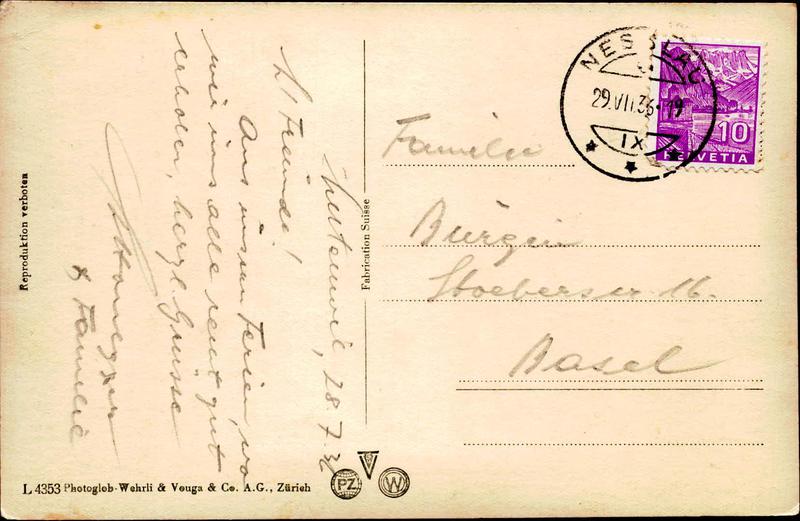 28.7.36
L' Freunde!
Aus unsern Ferien, wo
wir uns alle recht gut
erholen, herzl. Grüsse
Honegger
& Familie
Familie
Bürgin
Stoeberstr 16.
Basel
NESSLAU
29.VII.36-19
IX
10
HELVETIA
Fabrication Suisse
Reproduktion verboten
L 4353 Photoglob-Wehrli & Vouga & Co. A.G., Zürich
PZ
W